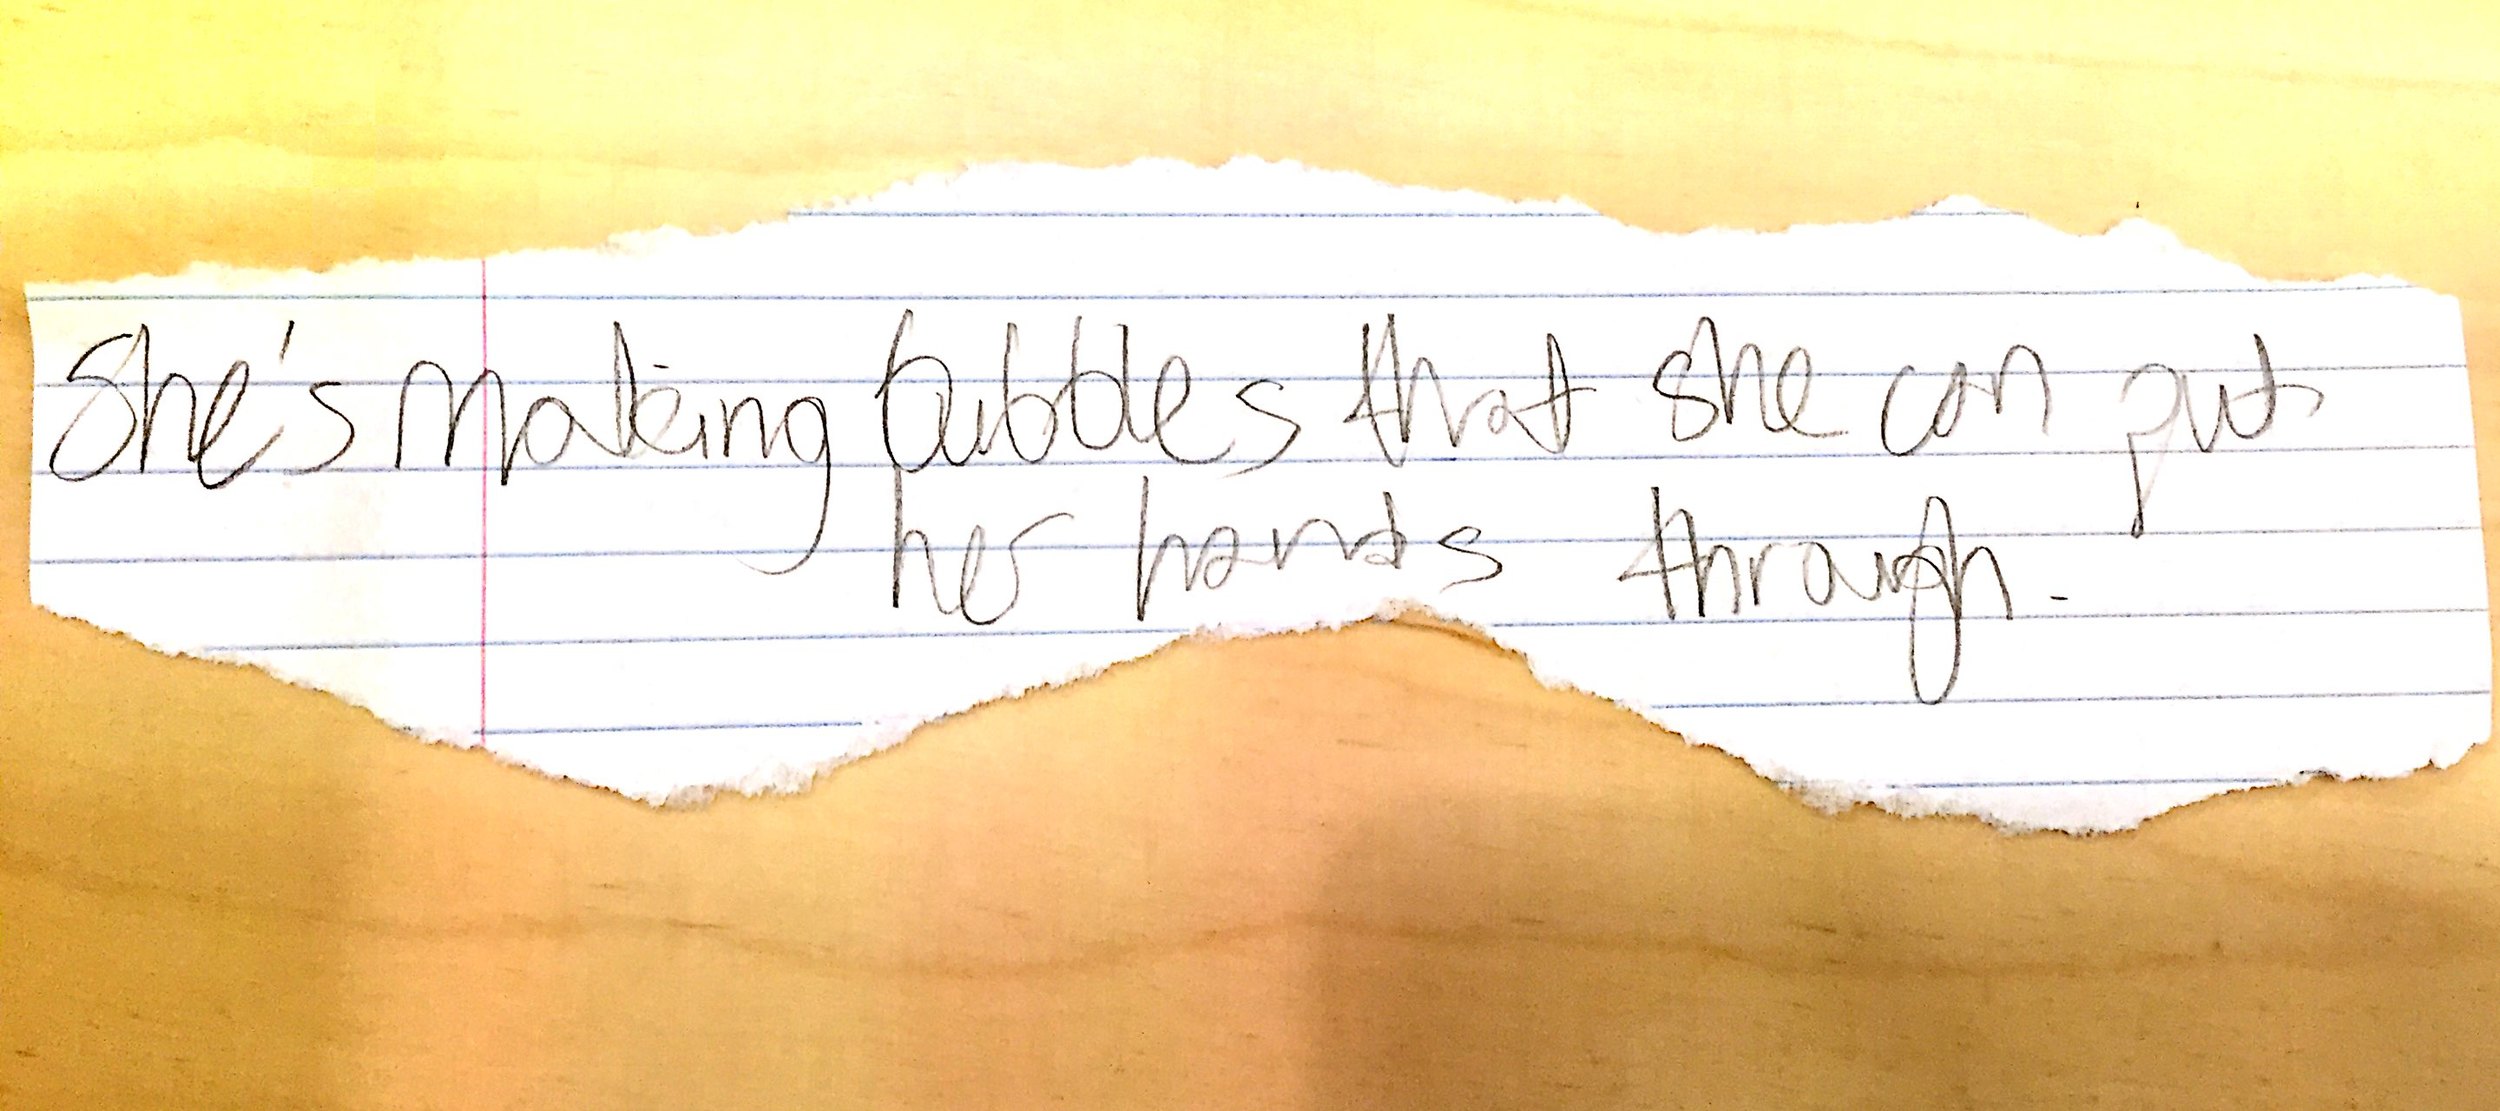 She's making bubbles that she can put
her hands through.